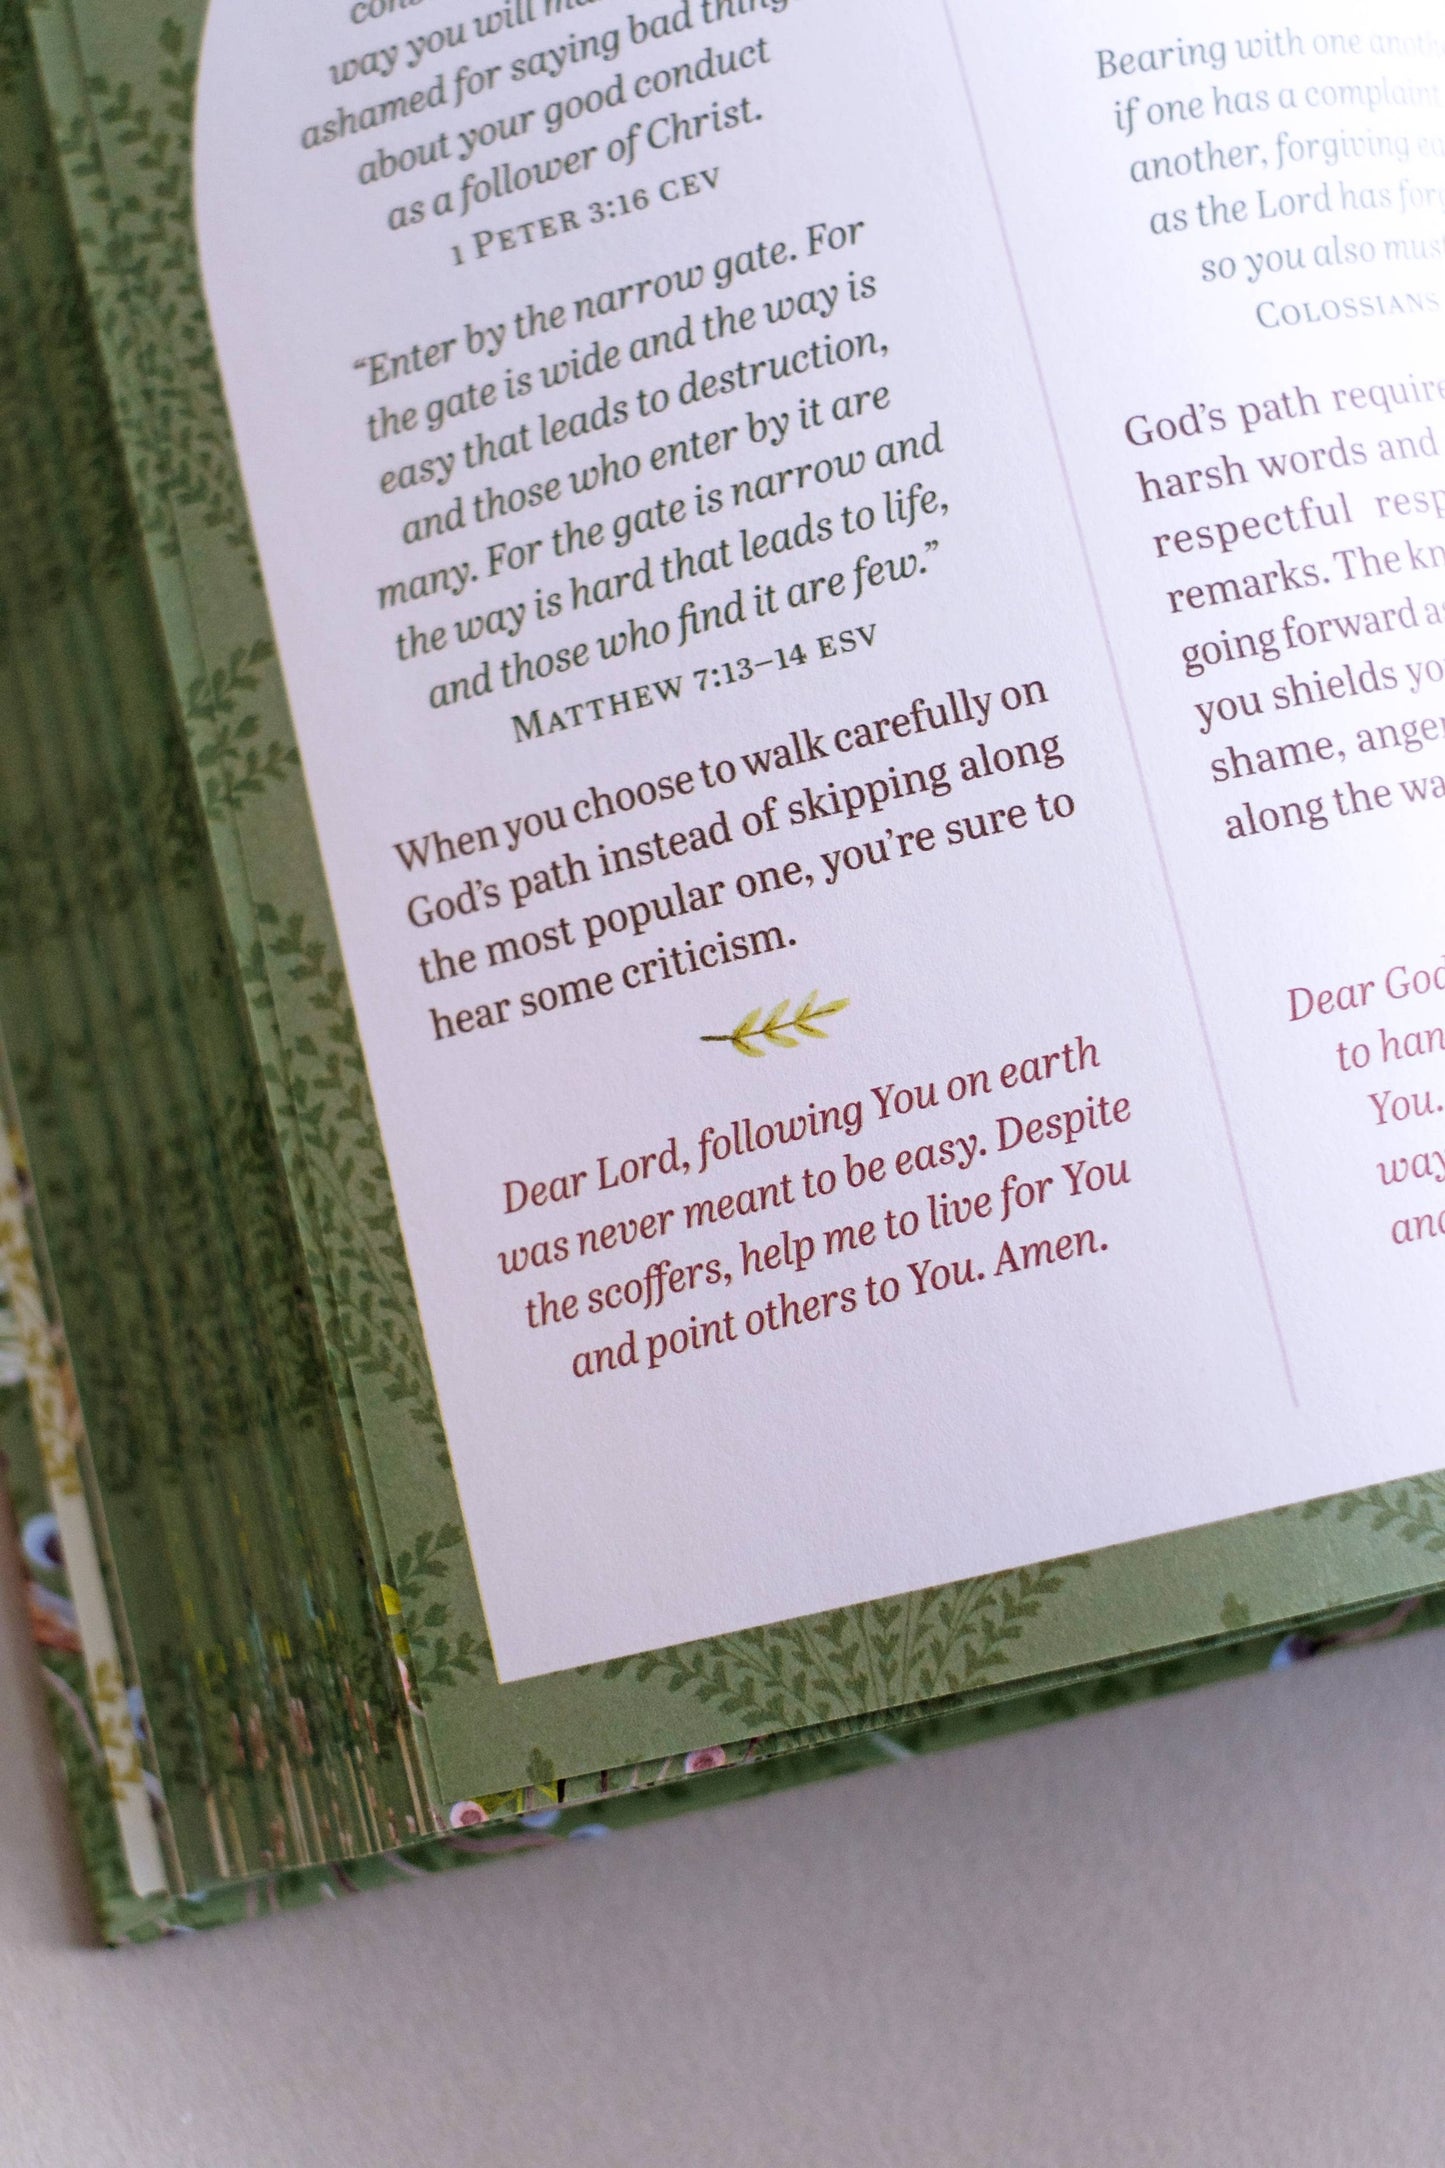 way you will
ashamed for saying bad things
about your good conduct
as a follower of Christ.
1 PETER 3:16 CEV
“Enter by the narrow gate. For
the gate is wide and the way is
easy that leads to destruction,
and those who enter by it are
many. For the gate is narrow and
the way is hard that leads to life,
and those who find it are few.”
MATTHEW 7:13–14 ESV
When you choose to walk carefully on
God’s path instead of skipping along
the most popular one, you’re sure to
hear some criticism.
Dear Lord, following You on earth
was never meant to be easy. Despite
the scoffers, help me to live for You
and point others to You. Amen.
Bearing with one
if one has a complaint
another, forgiving
as the Lord has
so you also must
COLOSSIANS
God’s path
harsh words and
respectful
remarks. The
going forward
you shields
shame,
along the
Dear God
to
You.
way